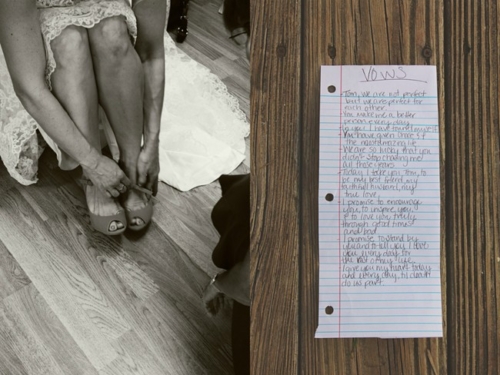 VOWS
Tom, we are not perfect
but we are perfect for
each other.
You make me a better
person every day
In you, I have found myself
You have given
the
We are so lucky that you
didn't stop finding me
all these years.
Today, I take you, Tom, to
be my best friend, my
faithful husband, my
true love.
I promise to encourage
you, to inspire you,
& to love you truly
through good times
and bad.
I promise to stand by
you and to tell you I love
you every day for
the rest of my life.
I give you my heart today
and every day, til death
do us part.